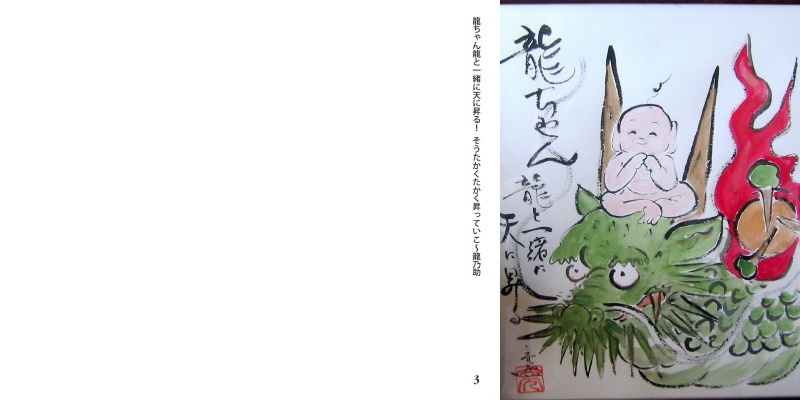 龍ちゃん龍と一緒に天に昇る！ そうたかくたかく昇っていこ～龍乃助
3
龍ちゃん
龍と一緒に
天に昇る